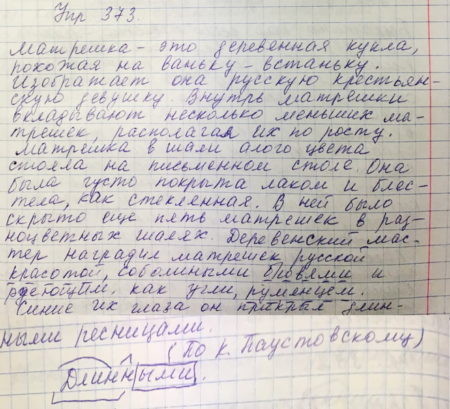 Упр 373.
Матрешка - это деревенная кукла,
похожая на ваньку - встаньку.
Изображает она русскую крестьян-
скую девушку. Внутрь матрешки
вкладывают несколько меньших ма-
трешек, располагая их по росту.
Матрешка в шали алого цвета
стояла на письменном столе. Она
была густо покрыта лаком и блес-
тела, как стеклянная. В ней было
скрыто еще пять матрешек в раз-
ноцветных шалях. Деревенский мас-
тер наградил матрешек русской
красотой, соболиными бровями и
как угли, румянцем.
Синие их глаза он прикрыл длин-
ными ресницами.
(По К. Паустовскому)
Длинными.